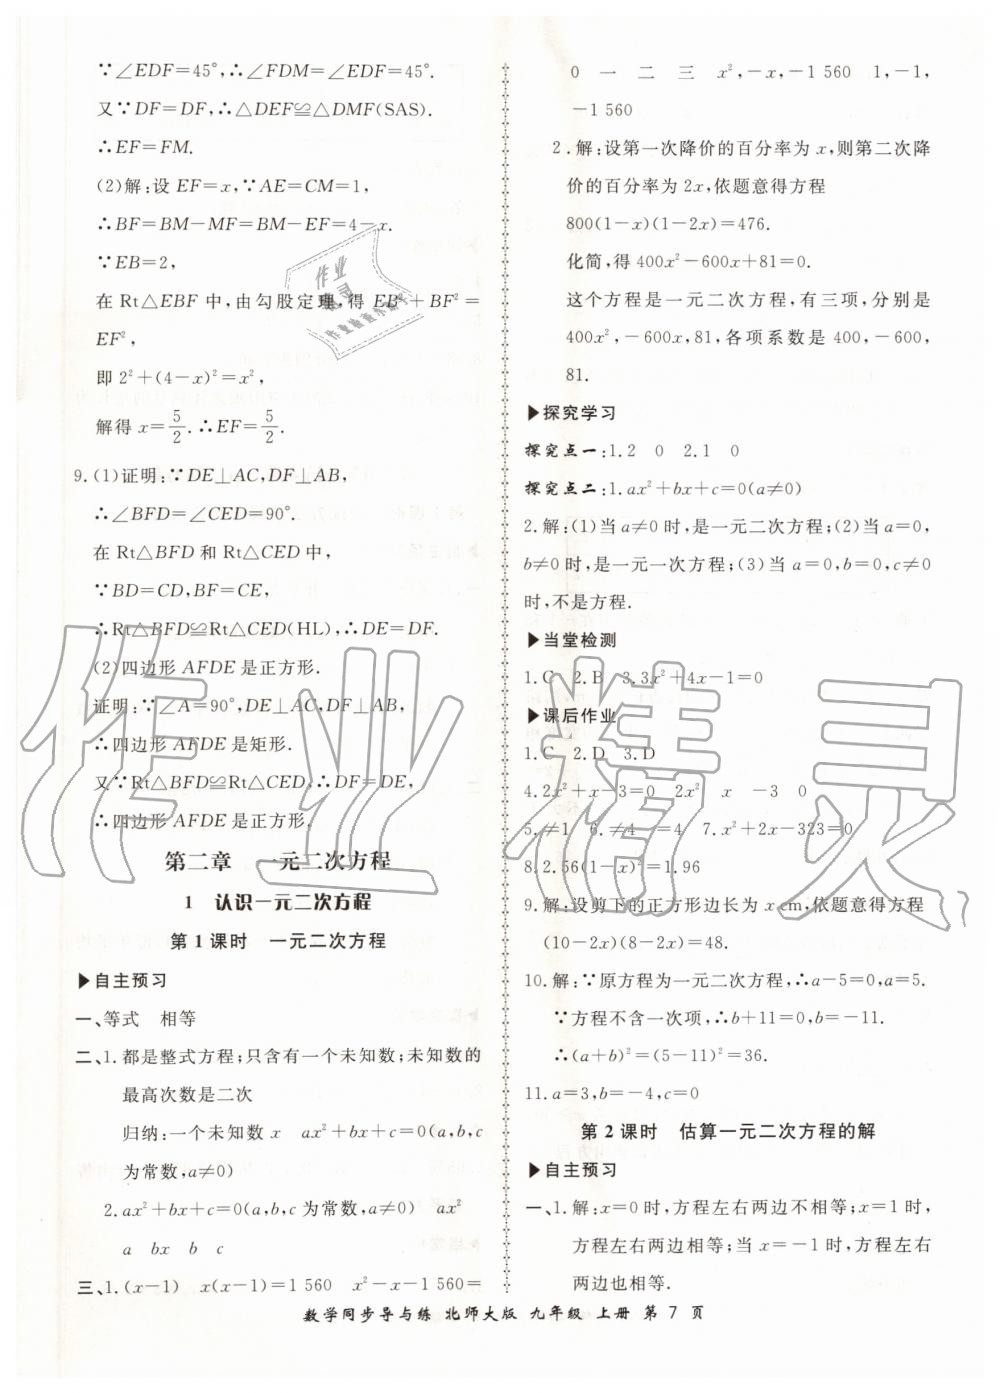 ∵∠EDF=45°,∴∠FDM=∠EDF=45°.
又∵DF=DF,∴△DEF≌△DMF(SAS).
∴EF=FM.
(2)解:设 EF=x,∵AE=CM=1,
∴BF=BM-MF=BM-EF=4-x.
∵EB=2,
在 Rt△EBF 中,由勾股定理,得 EB²+BF²=
EF²,
即 2²+(4-x)²=x²,
解得 x=5/2.∴EF=5/2.
9.(1)证明:∵DE⊥AC,DF⊥AB,
∴∠BFD=∠CED=90°.
在 Rt△BFD 和 Rt△CED 中,
∵BD=CD,BF=CE,
∴Rt△BFD≌Rt△CED(HL),∴DE=DF.
(2)四边形 AFDE 是正方形.
证明:∵∠A=90°,DE⊥AC,DF⊥AB,
∴四边形 AFDE 是矩形.
又∵Rt△BFD≌Rt△CED,∴DF=DE,
∴四边形 AFDE 是正方形.
第二章 一元二次方程
1 认识一元二次方程
第 1 课时 一元二次方程
▶自主预习
一、等式 相等
二、1.都是整式方程;只含有一个未知数;未知数的
最高次数是二次
归纳:一个未知数 x ax²+bx+c=0(a,b,c
为常数,a≠0)
2.ax²+bx+c=0(a,b,c 为常数,a≠0) ax²
a bx b c
三、1.(x-1) x(x-1)=1 560 x²-x-1 560=
0 一 二 三 x²,-x,-1 560 1,-1,
-1 560
2.解:设第一次降价的百分率为 x,则第二次降
价的百分率为 2x,依题意得方程
800(1-x)(1-2x)=476.
化简,得 400x²-600x+81=0.
这个方程是一元二次方程,有三项,分别是
400x²,-600x,81,各项系数是 400,-600,
81.
▶探究学习
探究点一:1.2 0 2.1 0
探究点二:1.ax²+bx+c=0(a≠0)
2.解:(1)当 a≠0 时,是一元二次方程;(2)当 a=0,
b≠0 时,是一元一次方程;(3)当 a=0,b=0,c≠0
时,不是方程.
▶当堂检测
1.C 2.B 3.3x²+4x-1=0
▶课后作业
1.C 2.D 3.D
4.2x²+x-3=0 2x² x -3 0
5.≠1 6.≠4 =4 7.x²+2x-323=0
8.2.56(1-x)²=1.96
9.解:设剪下的正方形边长为 x cm,依题意得方程
(10-2x)(8-2x)=48.
10.解:∵原方程为一元二次方程,∴a-5=0,a=5.
∵方程不含一次项,∴b+11=0,b=-11.
∴(a+b)²=(5-11)²=36.
11.a=3,b=-4,c=0
第 2 课时 估算一元二次方程的解
▶自主预习
一、1.解:x=0 时,方程左右两边不相等;x=1 时,
方程左右两边不相等;当 x=-1 时,方程左右
两边也相等.
数学同步导与练 北师大版 九年级 上册 第 7 页
作业精灵